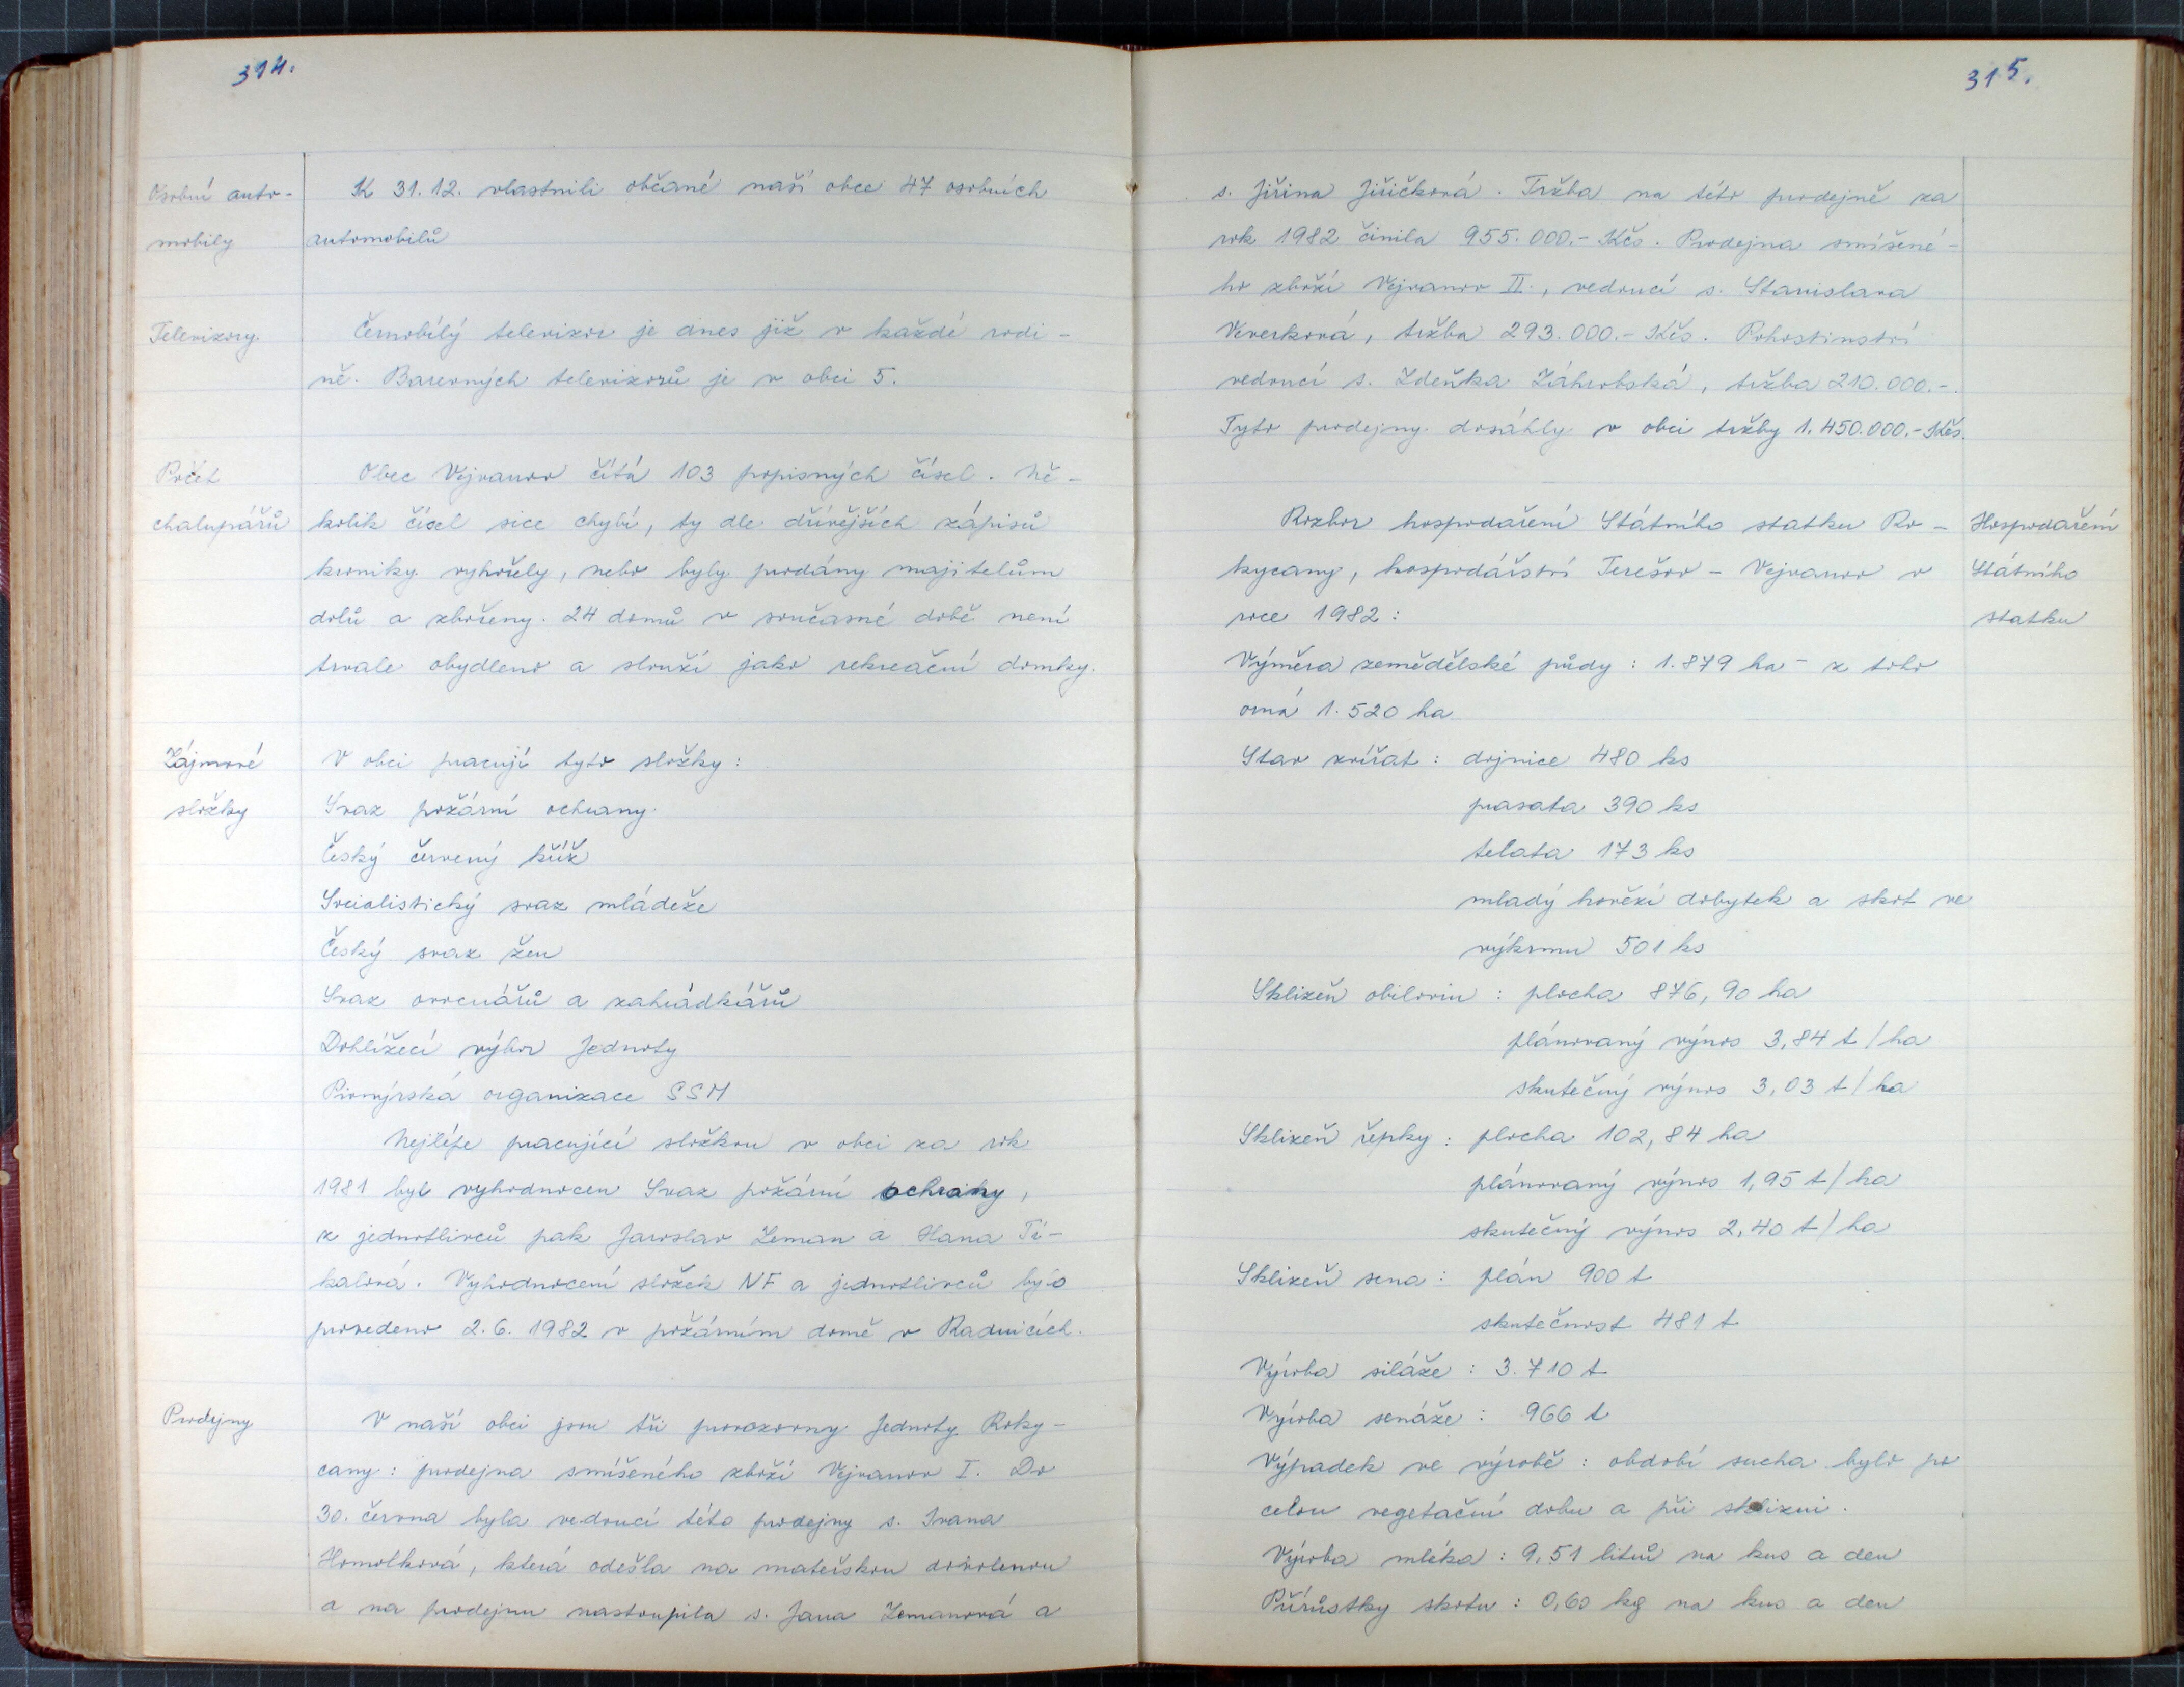 314.
Osobní auto-
mobily
K 31. 12. vlastnili občané naší obce 47 osobních
automobilů
Televizory.
Černobílý televizor je dnes již v každé rodi-
ně. Barevných televizorů je v obci 5.
Počet
chalupářů
Obec Vejvanov čítá 103 popisných čísel. Ně-
kolik čísel sice chybí, ty dle dřívějších zápisů
kroniky vyhořely, nebo byly prodány majitelům
dolů a zbořeny. 24 domů v současné době není
trvale obydleno a slouží jako rekreační domky.
Zájmové
složky
V obci pracují tyto složky:
Svaz požární ochrany
Český červený kříž
Socialistický svaz mládeže
Český svaz žen
Svaz ovocnářů a zahrádkářů
Dohlížecí výbor Jednoty
Pionýrská organizace SSM
Nejlépe pracující složkou v obci za rok
1981 byl vyhodnocen Svaz požární ochrany,
z jednotlivců pak Jaroslav Zeman a Hana Ti-
kalová. Vyhodnocení složek NF a jednotlivců bylo
provedeno 2. 6. 1982 v požárním domě v Radnicích.
Prodejny
V naší obci jsou tři provozovny Jednoty Roky-
cany: prodejna smíšeného zboží Vejvanov I. Do
30. června byla vedoucí této prodejny s. Ivana
Homolková, která odešla na mateřskou dovolenou
a na prodejnu nastoupila s. Jana Zemanová a
315.
s. Jiřina Jiřičková. Tržba na této prodejně za
rok 1982 činila 955.000.- Kčs. Prodejna smíšené-
ho zboží Vejvanov II., vedoucí s. Stanislava
Veverková, tržba 293.000.- Kčs. Pohostinství
vedoucí s. Zdeňka Záhrobská, tržba 210.000.-.
Tyto prodejny dosáhly v obci tržby 1.450.000.- Kčs.
Hospodaření
Státního
statku
Rozbor hospodaření Státního statku Ro-
kycany, hospodářství Terešov - Vejvanov v
roce 1982:
Výměra zemědělské půdy: 1.879 ha - z toho
orná 1.520 ha
Stav zvířat: dojnice 480 ks
prasata 390 ks
telata 173 ks
mladý hovězí dobytek a skot ve
výkrmu 501 ks
Sklizeň obilovin: plocha 876,90 ha
plánovaný výnos 3,84 t/ha
skutečný výnos 3,03 t/ha
Sklizeň řepky: plocha 102,84 ha
plánovaný výnos 1,95 t/ha
skutečný výnos 2,40 t/ha
Sklizeň sena: plán 900 t
skutečnost 481 t
Výroba siláže: 3.710 t
Výroba senáže: 966 t
Výpadek ve výrobě: období sucha bylo po
celou vegetační dobu a při sklizni.
Výroba mléka: 9,51 litrů na kus a den
Přírůstky skotu: 0,60 kg na kus a den